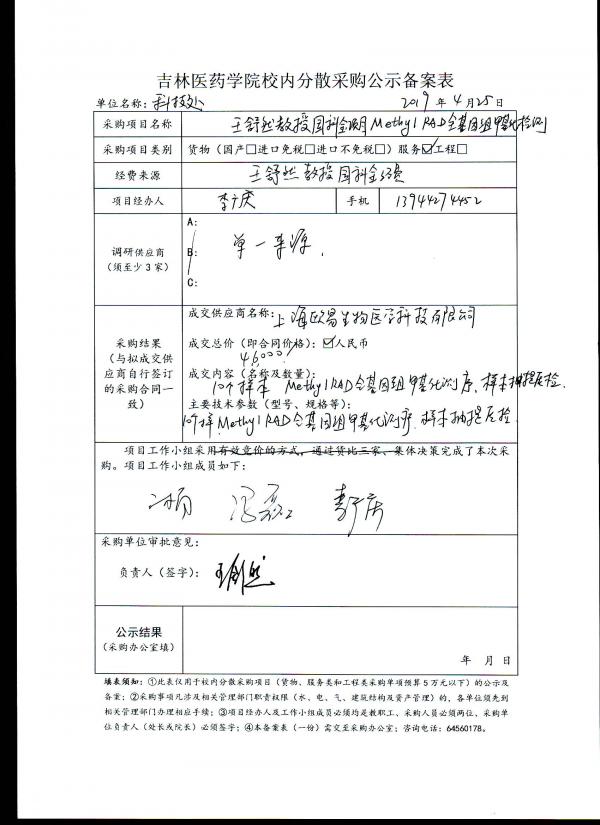 吉林医药学院校内分散采购公示备案表
单位名称：科技处 2019年4月25日
采购项目名称 王舒然教授国科金项目MethylRAD全基因组甲基化检测
采购项目类别 货物（国产□进口免税□进口不免税□）服务☑工程□
经费来源 王舒然教授国科金经费
项目经办人 李广庆 手机 13944274452
调研供应商
（须至少3家）
A：
B： 单一来源.
C：
采购结果
（与拟成交供
应商自行签订
的采购合同一
致）
成交供应商名称：上海欧易生物医学科技有限公司
成交总价（即合同价格）：☑人民币
46000
成交内容（名称及数量）：
10个样本 MethylRAD全基因组甲基化测序、样本抽提质检.
主要技术参数（型号、规格等）：
10个样MethylRAD全基因组甲基化测序、样本抽提质检.
项目工作小组采用有效竞价的方式，通过货比三家、集体决策完成了本次采
购。项目工作小组成员如下：
采购单位审批意见：
负责人（签字）：
公示结果
（采购办公室填）
年 月 日
填表须知：①此表仅用于校内分散采购项目（货物、服务类和工程类采购单项预算5万元以下）的公示及
备案；②采购事项凡涉及相关管理部门职责权限（水、电、气、建筑结构及资产管理）的，各单位须先到
相关管理部门办理相应手续；③项目经办人及工作小组成员必须均是教职工、采购人员必须两位、采购单
位负责人（处长或院长）必须签字；④本备案表（一份）需交至采购办公室；咨询电话：64560178。